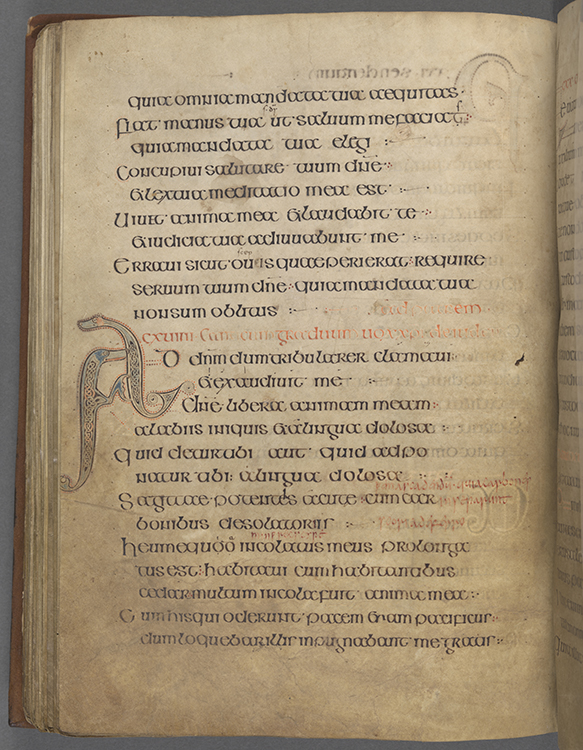 quia omnia mandata tua aequitas
fiat manus tua ut saluum me faciat
quia mandata tua elegi
Concupiui salutare tuum dn̄e
& lex tua meditatio mea est
Uiuit anima mea & laudabit te
& iudicia tua adiuuabunt me
Erraui sicut ouis quae perierat require
seruum tuum dn̄e quia mandata tua
non sum oblitus
graduum
AD dn̄m dum tribularer clamaui
& exaudiuit me
dn̄e libera animam meam
a labiis iniquis & a lingua dolosa
quid detur tibi aut quid adpo
natur tibi a lingua dolosa
Sagittae potentes acute cum car
bonibus desolatoriis
heu me quō incolatus meus prolonga
tus est habitaui cum habitantibus
cedar multum incola fuit anima mea
Cum his qui oderunt pacem eram pacificus
dum loquebar illis inpugnabant me gratis